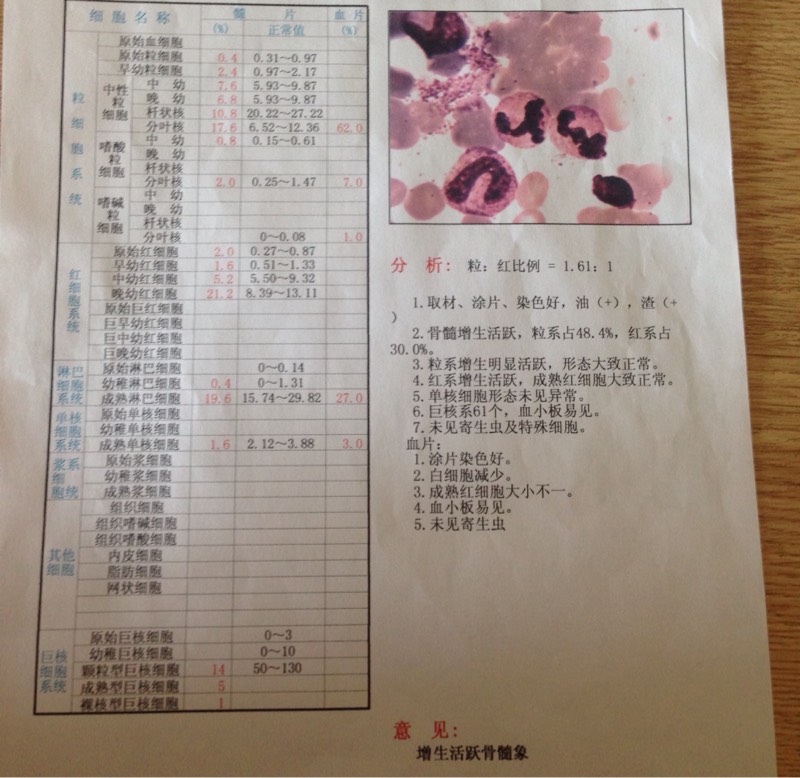 细胞名称 髓片 血片
(%) 正常值 (%)
粒细胞系统
原始血细胞
原始粒细胞 0.4 0.31~0.97
早幼粒细胞 2.4 0.97~2.17
中性粒细胞
中 幼 7.6 5.93~9.87
晚 幼 6.8 5.93~9.87
杆状核 10.8 20.22~27.22
分叶核 17.6 6.52~12.36 62.0
嗜酸粒细胞
中 幼 0.8 0.15~0.61
晚 幼
杆状核
分叶核 2.0 0.25~1.47 7.0
嗜碱粒细胞
中 幼
晚 幼
杆状核
分叶核 0~0.08 1.0
红细胞系统
原始红细胞 2.0 0.27~0.87
早幼红细胞 1.6 0.51~1.33
中幼红细胞 5.2 5.50~9.32
晚幼红细胞 21.2 8.39~13.11
原始巨红细胞
巨早幼红细胞
巨中幼红细胞
巨晚幼红细胞
淋巴细胞系统
原始淋巴细胞 0~0.14
幼稚淋巴细胞 0.4 0~1.31
成熟淋巴细胞 19.6 15.74~29.82 27.0
单核细胞系统
原始单核细胞
幼稚单核细胞
成熟单核细胞 1.6 2.12~3.88 3.0
浆系细胞统
原始浆细胞
幼稚浆细胞
成熟浆细胞
其他细胞
组织细胞
组织嗜碱细胞
组织嗜酸细胞
内皮细胞
脂肪细胞
网状细胞
巨核细胞系统
原始巨核细胞 0~3
幼稚巨核细胞 0~10
颗粒型巨核细胞 14 50~130
成熟型巨核细胞 5
裸核型巨核细胞 1
分 析: 粒:红比例 = 1.61:1
1.取材、涂片、染色好,油(+),渣(+
)
2.骨髓增生活跃,粒系占48.4%,红系占
30.0%。
3.粒系增生明显活跃,形态大致正常。
4.红系增生活跃,成熟红细胞大致正常。
5.单核细胞形态未见异常。
6.巨核系61个,血小板易见。
7.未见寄生虫及特殊细胞。
血片:
1.涂片染色好。
2.白细胞减少。
3.成熟红细胞大小不一。
4.血小板易见。
5.未见寄生虫
意 见:
增生活跃骨髓象